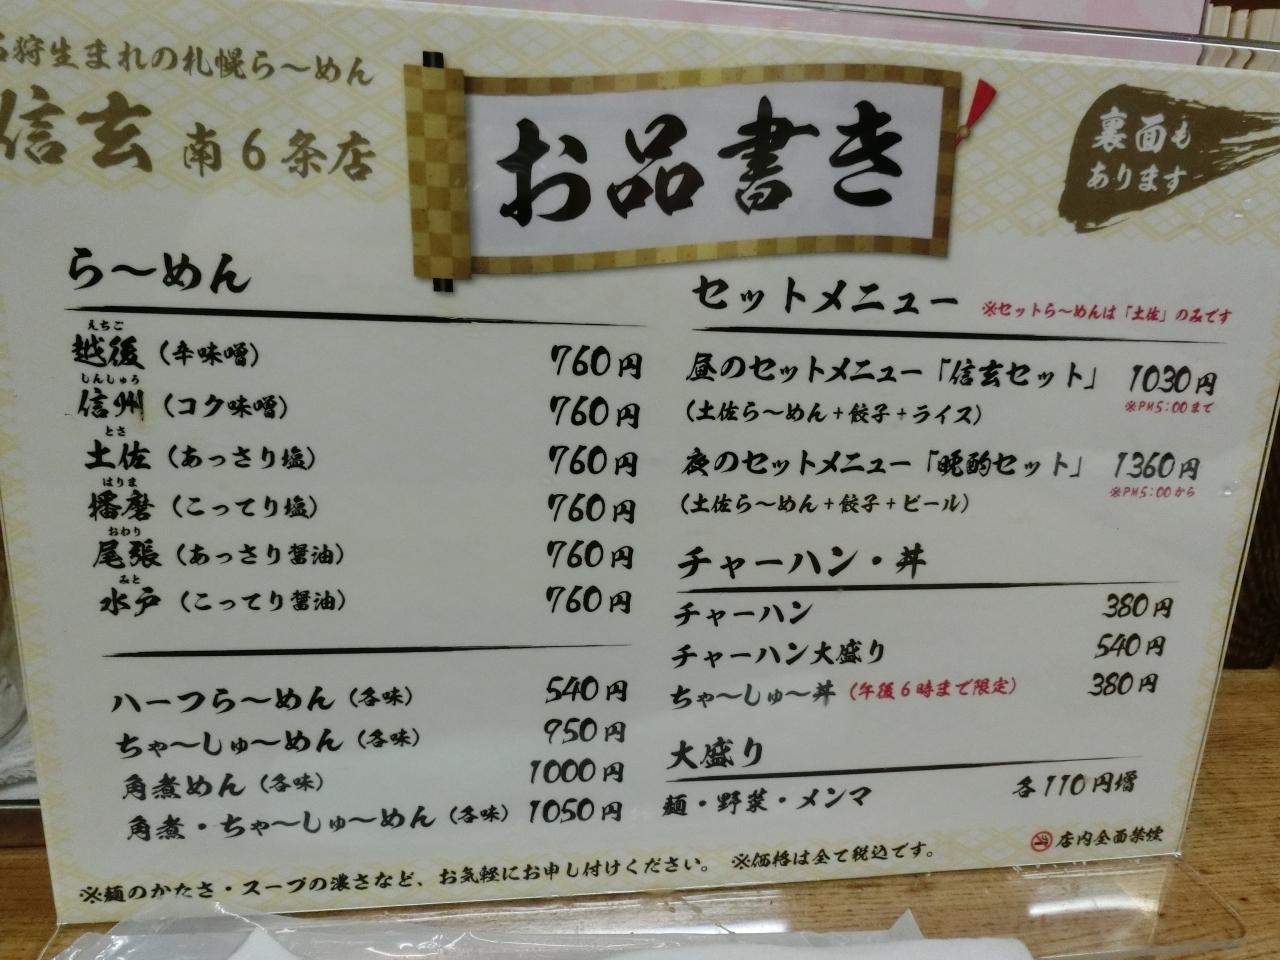 石狩生まれの札幌ら〜めん
信玄 南6条店
お品書き
裏面も
あります
ら〜めん
えちご
越後（辛味噌） 760円
しんしゅう
信州（コク味噌） 760円
とさ
土佐（あっさり塩） 760円
はりま
播磨（こってり塩） 760円
おわり
尾張（あっさり醤油） 760円
みと
水戸（こってり醤油） 760円
ハーフら〜めん（各味） 540円
ちゃ〜しゅ〜めん（各味） 950円
角煮めん（各味） 1000円
角煮・ちゃ〜しゅ〜めん（各味） 1050円
セットメニュー ※セットら〜めんは「土佐」のみです
昼のセットメニュー「信玄セット」 1030円
（土佐ら〜めん+餃子+ライス） ※PM5:00まで
夜のセットメニュー「晩酌セット」 1360円
（土佐ら〜めん+餃子+ビール） ※PM5:00から
チャーハン・丼
チャーハン 380円
チャーハン大盛り 540円
ちゃ〜しゅ〜丼（午後6時まで限定） 380円
大盛り
麺・野菜・メンマ 各110円増
店内全面禁煙
※麺のかたさ・スープの濃さなど、お気軽にお申し付けください。 ※価格は全て税込です。